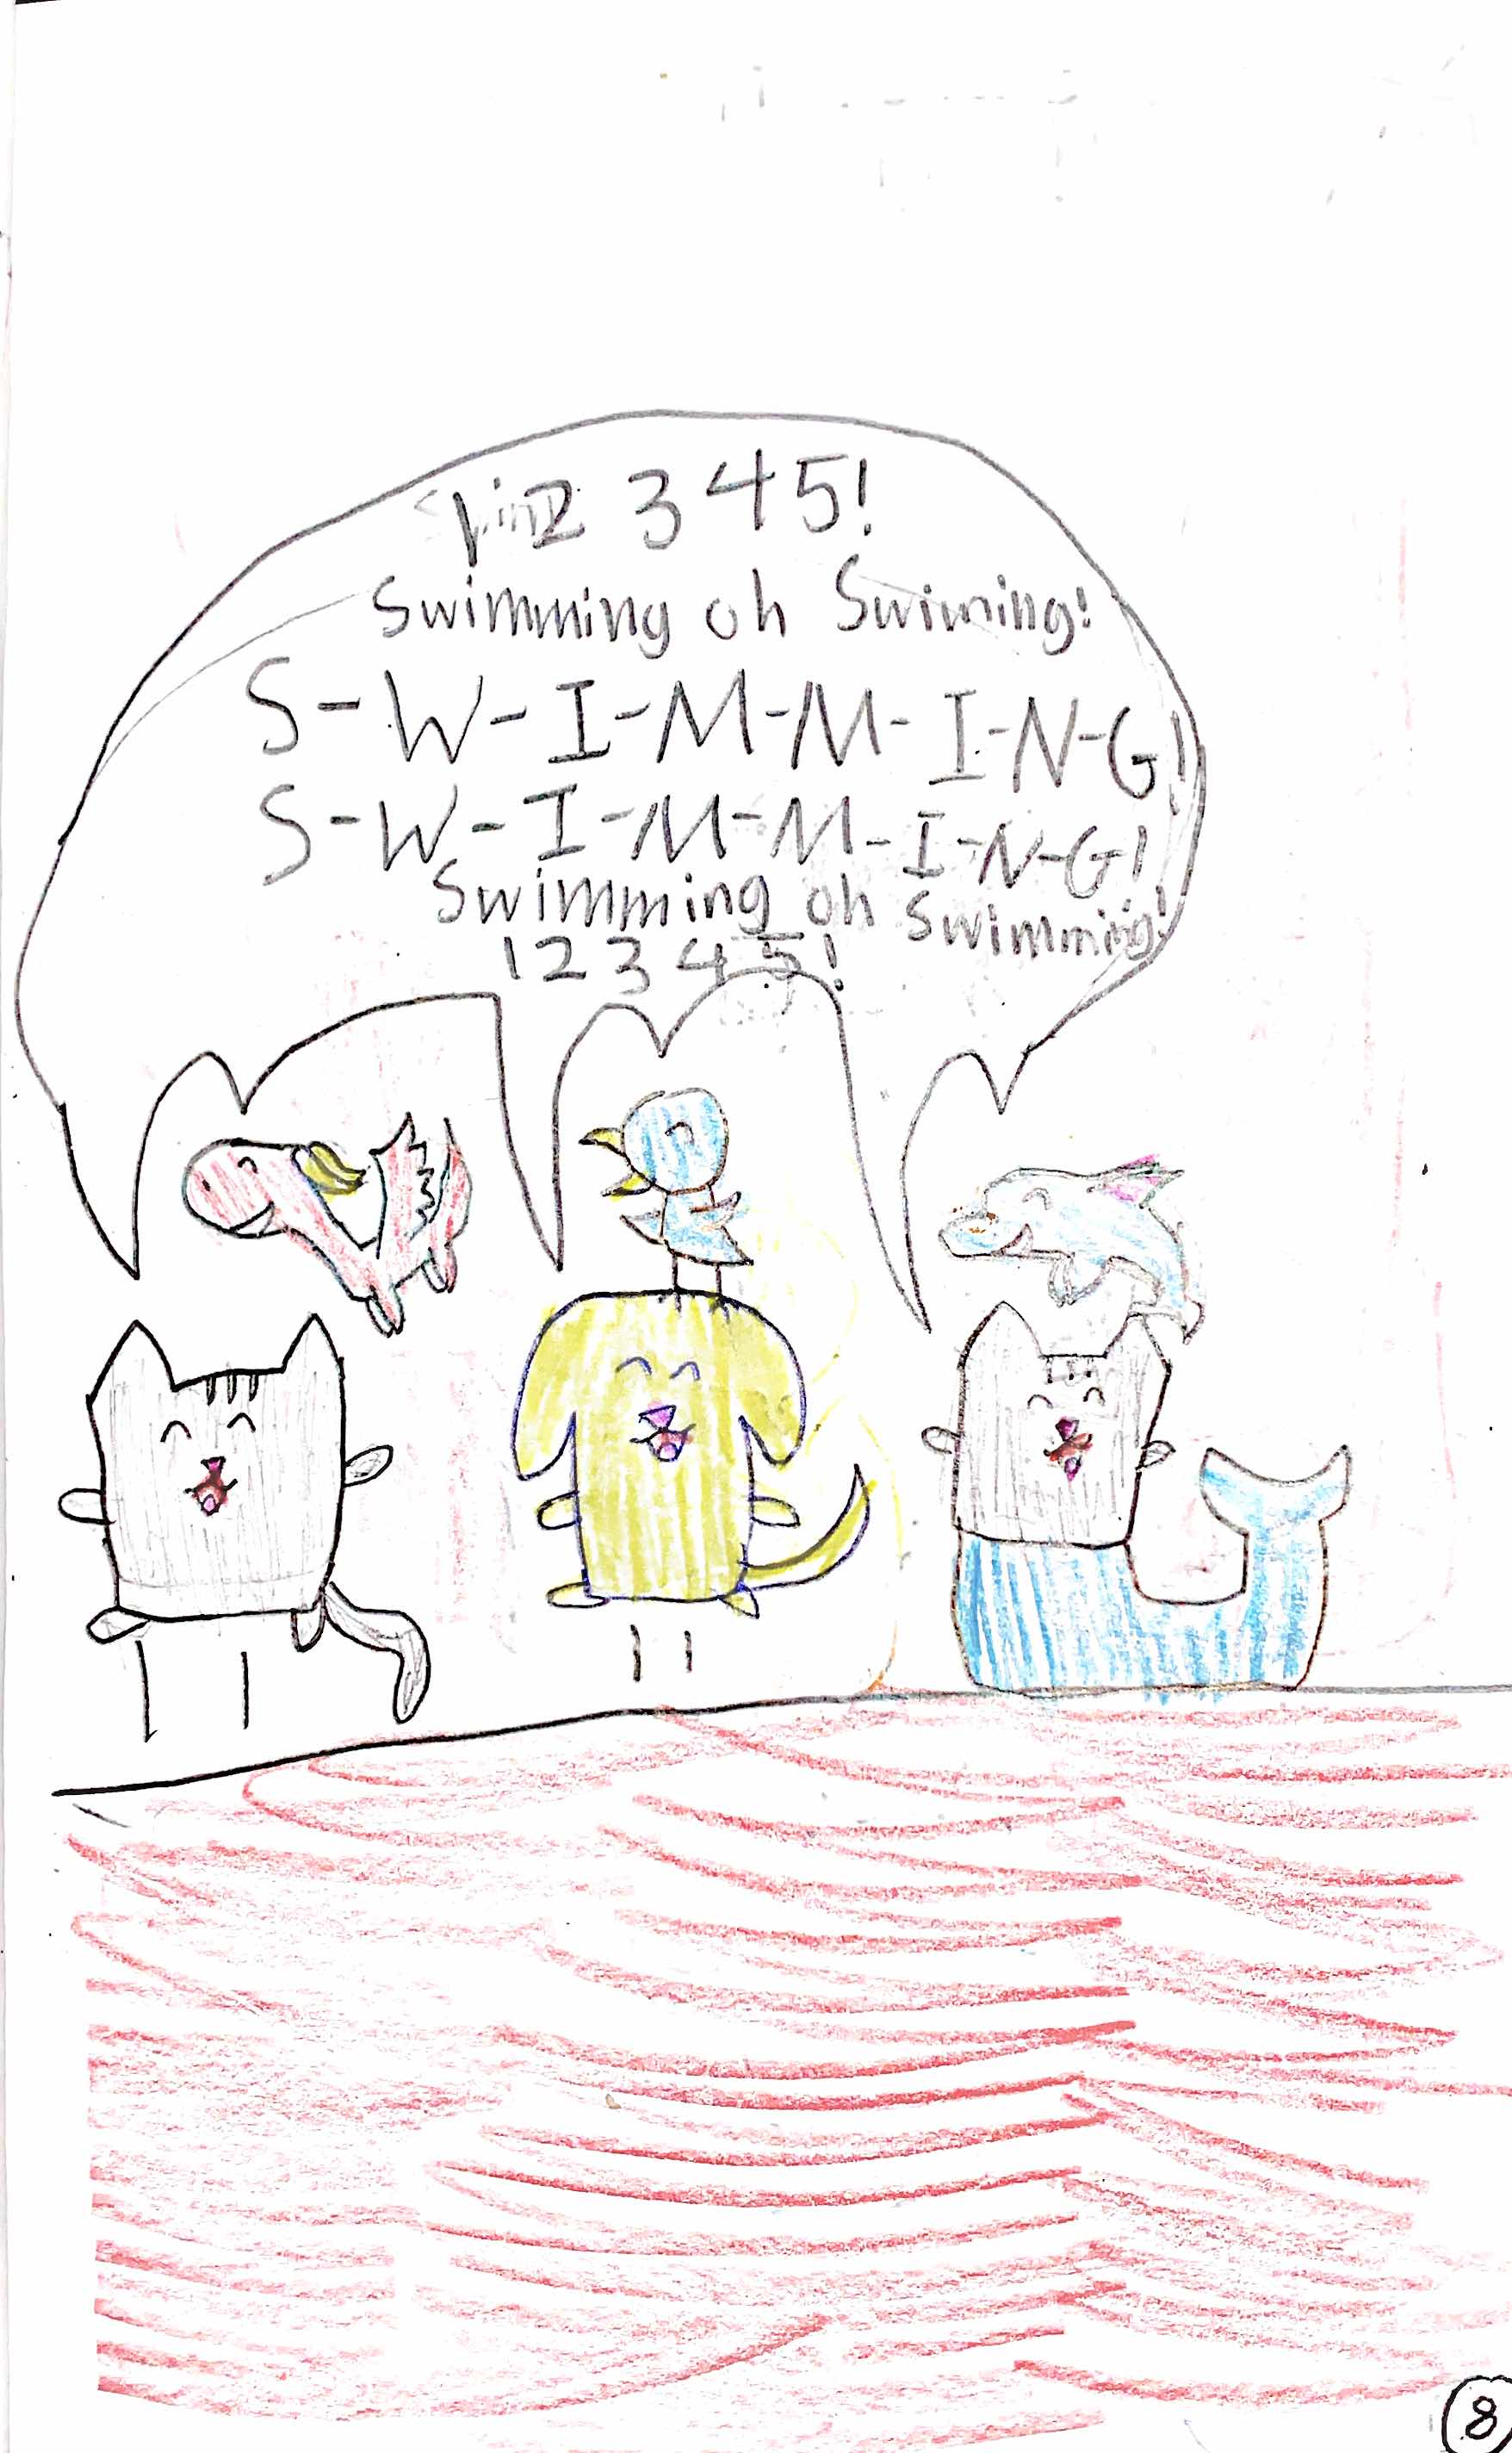 1 2 3 4 5!
Swimming oh Swiming!
S-W-I-M-M-I-N-G!
S-W-I-M-M-I-N-G!
Swimming oh Swimming!
1 2 3 4 5!
8